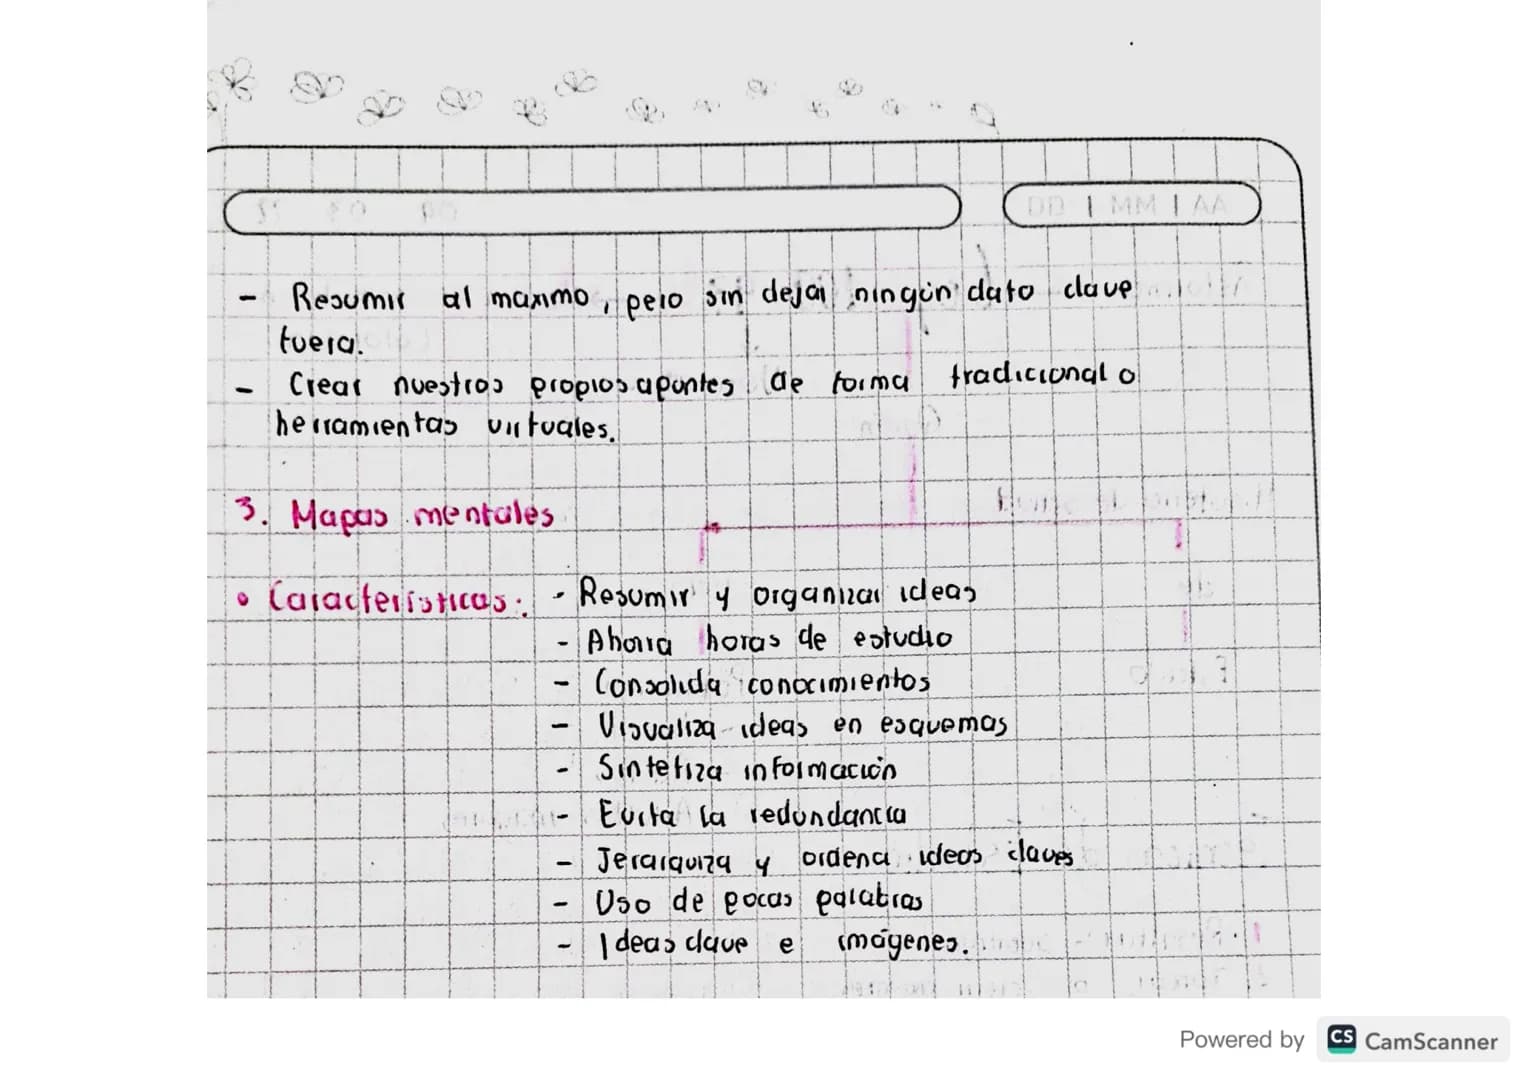 DD | MM | AA
- Resumir al maximo, pero sin dejar ningún dato clave
fuera.
- Crear nuestros propios apuntes de forma tradicional o
herramientas virtuales.
3. Mapas mentales
• Características: - Resumir y organizar ideas
- Ahorra horas de estudio
- Consolida conocimientos
- Visualiza ideas en esquemas
- Sintetiza información
- Evita la redundancia
- Jerarquiza y ordena ideas claves
- Uso de pocas palabras
- Ideas clave e imágenes.
Powered by CS CamScanner